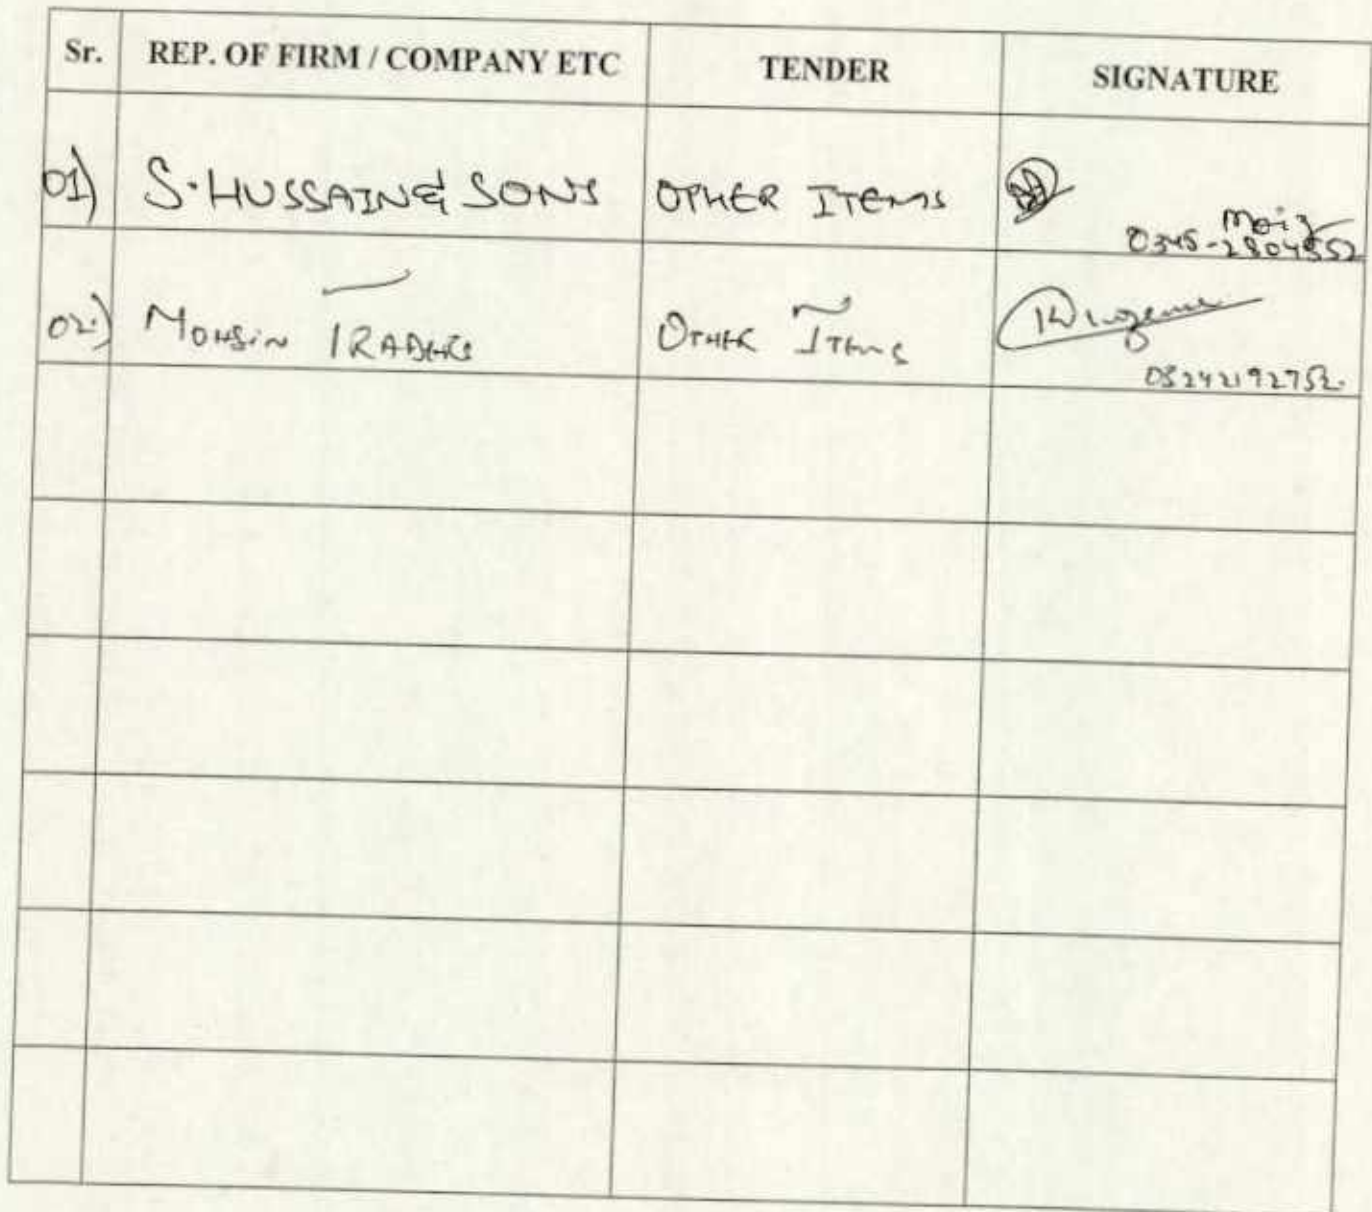 Sr. REP. OF FIRM / COMPANY ETC TENDER SIGNATURE
01) S. HUSSAIN & SONS OTHER ITEMS
Moiz
0345-2804552
02) MOHSIN TRADERS OTHER ITEMS
03242192752.